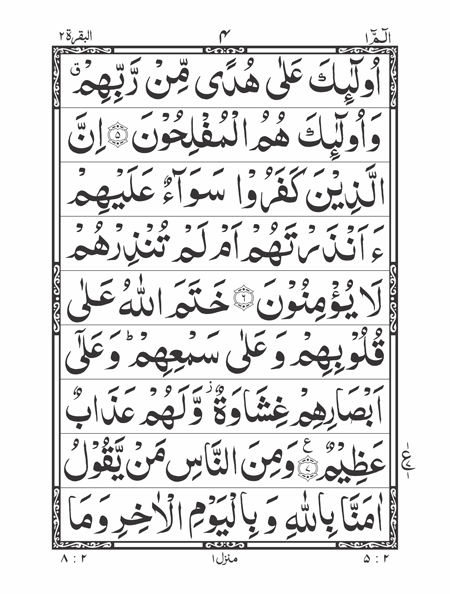 الٓمّٓ ١ ۴ البقرة ٢
اُولٰٓئِكَ عَلٰى هُدًى مِّنْ رَّبِّهِمْ ۗ
وَاُولٰٓئِكَ هُمُ الْمُفْلِحُوْنَ ۝۵ اِنَّ
الَّذِيْنَ كَفَرُوْا سَوَآءٌ عَلَيْهِمْ
ءَاَنْذَرْتَهُمْ اَمْ لَمْ تُنْذِرْهُمْ
لَا يُؤْمِنُوْنَ ۝۶ خَتَمَ اللّٰهُ عَلٰى
قُلُوْبِهِمْ وَ عَلٰى سَمْعِهِمْ ؕ وَ عَلٰٓى
اَبْصَارِهِمْ غِشَاوَةٌ ۫ وَّ لَهُمْ عَذَابٌ
عَظِيْمٌ ۝۷ ع وَمِنَ النَّاسِ مَنْ يَّقُوْلُ
اٰمَنَّا بِاللّٰهِ وَ بِالْيَوْمِ الْاٰخِرِ وَ مَا
۵ : ٢ منزل ١ ٨ : ٢